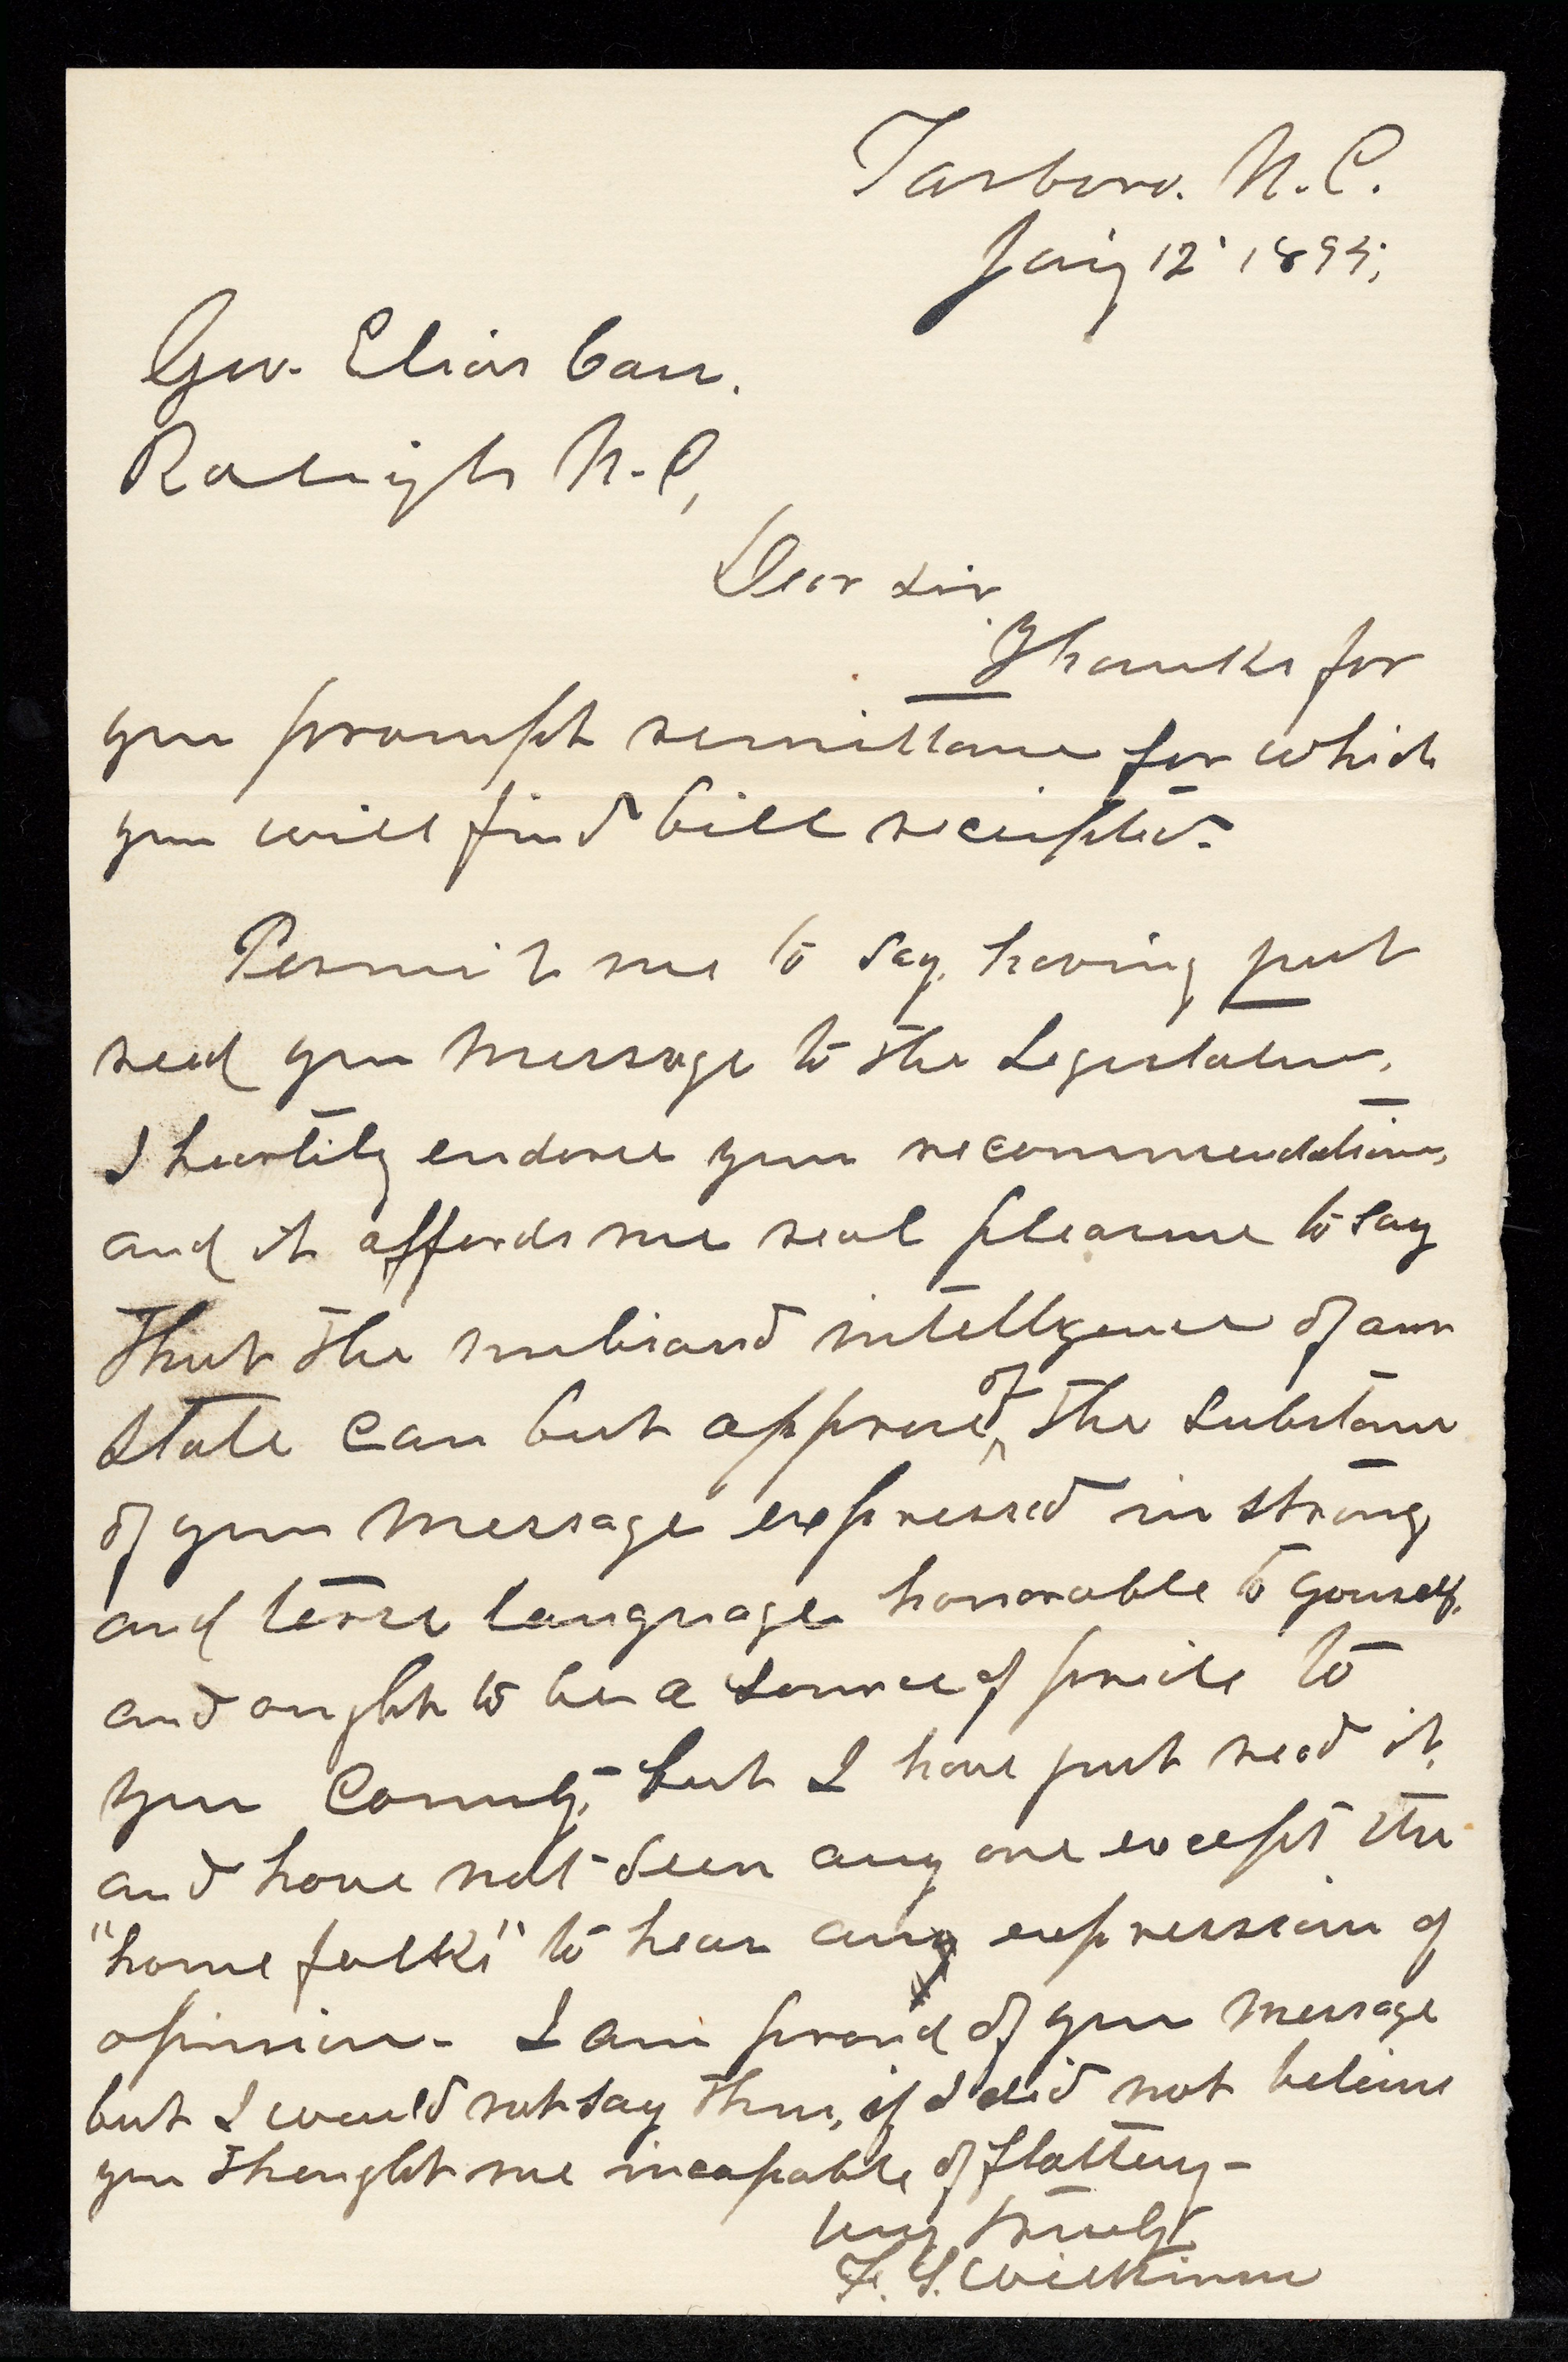 Tarboro. N.C.
Jany 12' 1895,
Gov. Elias Carr.
Raleigh N.C,
Dear Sir
Thanks for
your prompt remittance for which
you will find bill receipted.
Permit me to say, having just
read your message to the Legislature,
I heartily endorse your recommendations,
and it affords me real pleasure to say
that the unbiased intelligence of our
State can but approve of the substance
of your message expressed in strong
and terse language honorable to yourself,
and ought to be a source of pride to
your County, but I have just read it,
and have not seen any one except the
"home folks" to hear any expression of
opinion - I am proud of your message
but I would not say thus, if I did not believe
you thought me incapable of flattery -
Very truly
F. S. Wilkinson